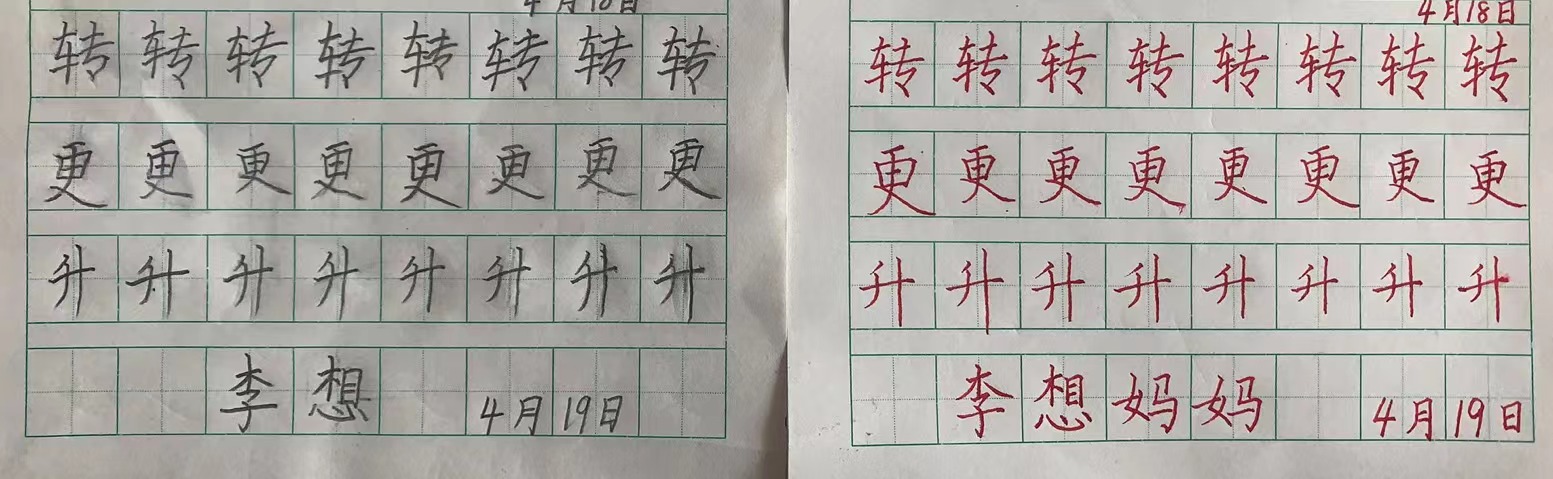 4月18日
转转转转转转转转
更更更更更更更更
升升升升升升升升
李想 4月19日
4月18日
转转转转转转转转
更更更更更更更更
升升升升升升升升
李想妈妈 4月19日